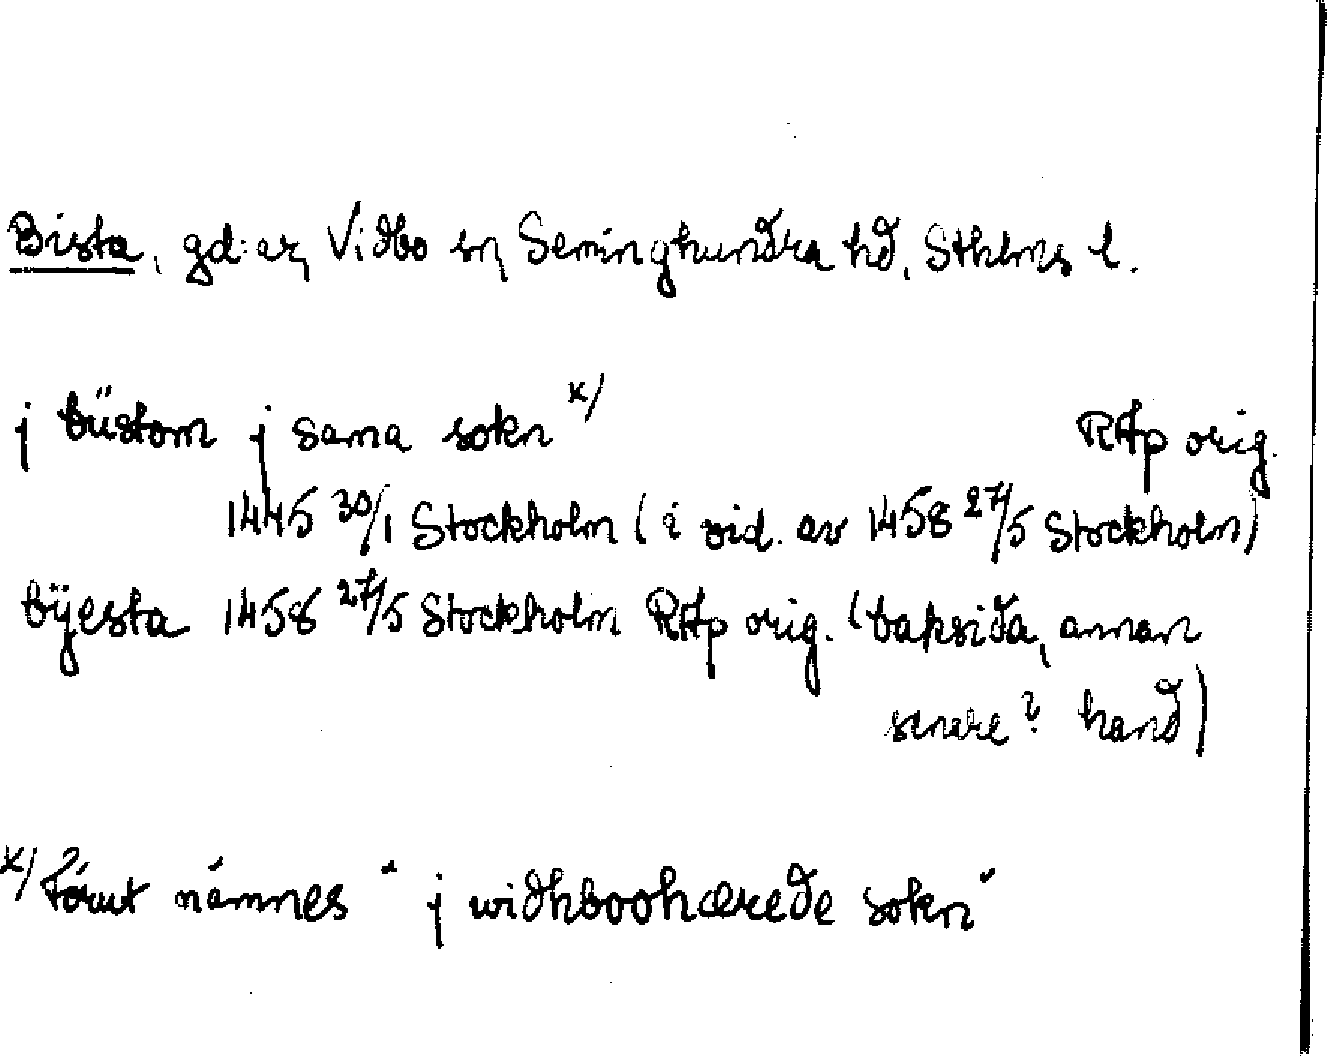 Bista, gd:ar, Vidbo sn, Seminghundra hd, Sthlms l.
j büstom j sama sokn x/ RAp orig.
1445 30/1 Stockholm (i vid. av 1458 27/5 Stockholm)
bÿesta 1458 27/5 Stockholm RAp orig. (baksida, annan
senare? hand)
x/ Förut nämnes "j widhboohærede sokn"